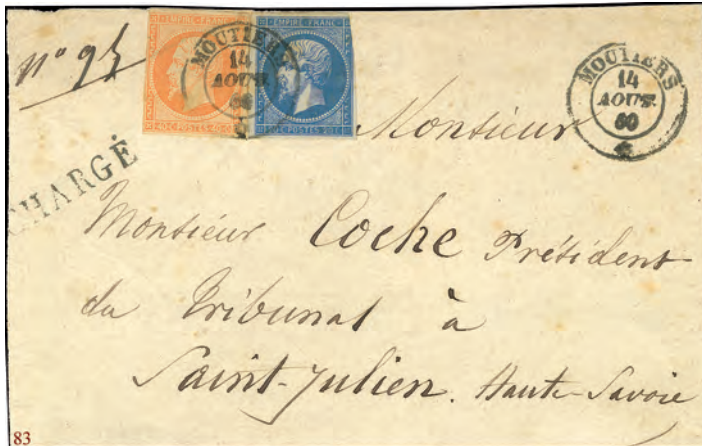 EMPIRE FRANC EMPIRE FRANC
n° 94
MOUTIERS
14
AOUT
60
40 C POSTES 40 C 20 C POSTES 20 C
MOUTIERS
14
AOUT
60
CHARGÉ
Monsieur
Monsieur Coche Président
du Tribunal à
Saint-Julien. Haute-Savoie
83